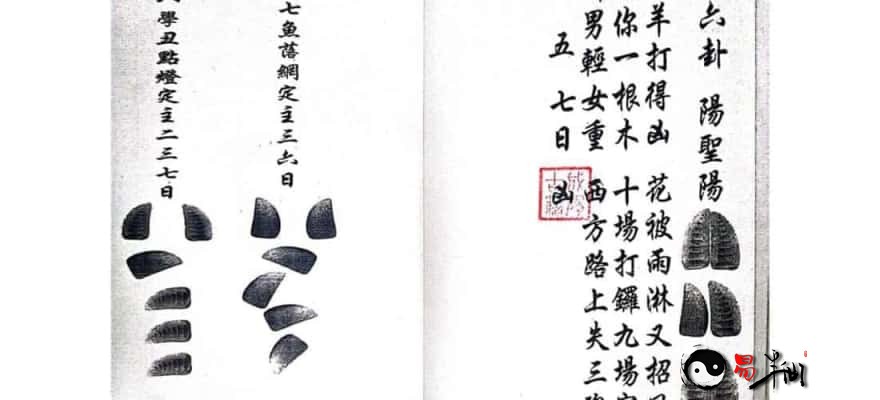 六卦 陽聖陽
羊打得凶 花被雨淋又招
你一根木 十場打鑼九場
男輕女重 西方路上失三
五七日 凶
七鱼落網定主三六日
學丑點燈定主二三七日
易